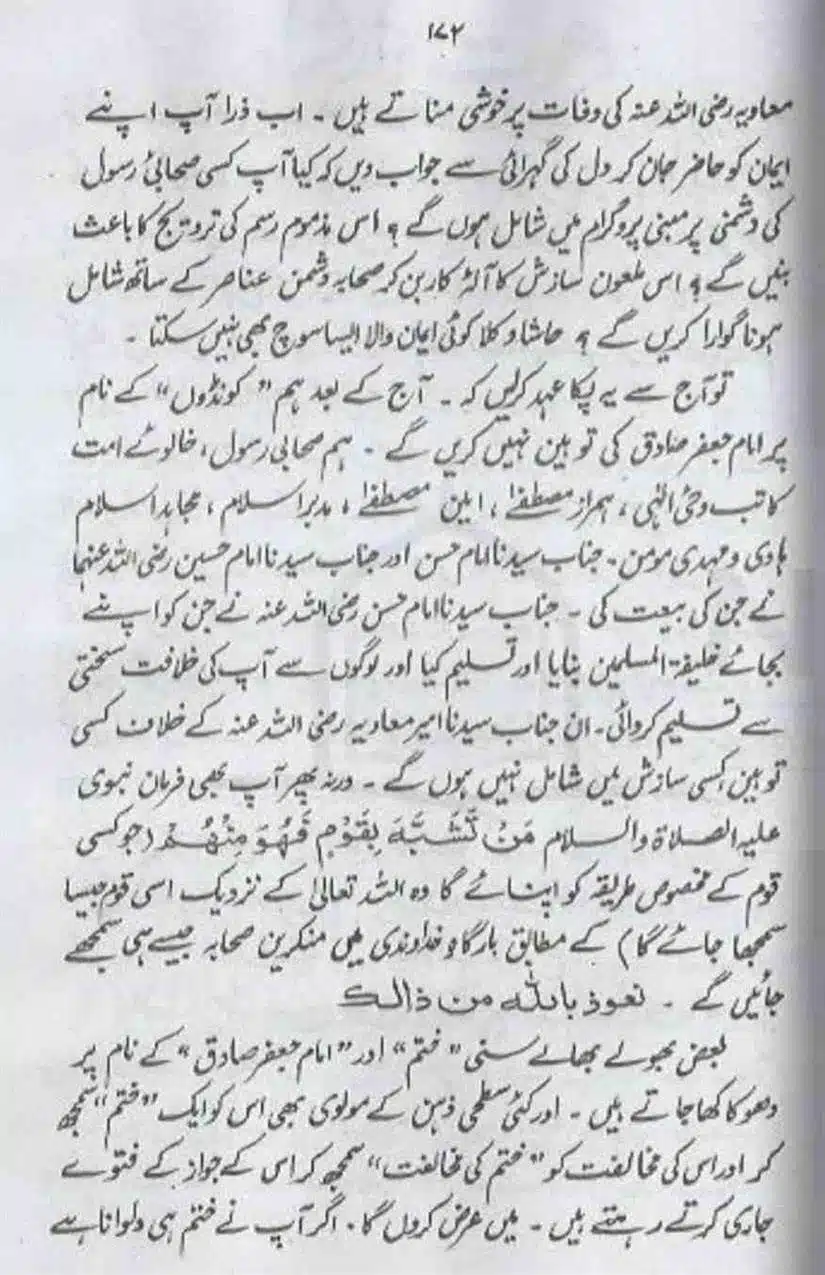 ۱۷۲
معاویہ رضی اللہ عنہ کی وفات پر خوشی مناتے ہیں ۔ اب ذرا آپ اپنے
ایمان کو حاضر جان کر دل کی گہرائی سے جواب دیں کہ کیا آپ کسی صحابیٔ رسول
کی دشمنی پر مبنی پروگرام میں شامل ہوں گے ؟ اس مذموم رسم کی ترویج کا باعث
بنیں گے ؟ اس ملعون سازش کا آلۂ کار بن کر صحابہ دشمن عناصر کے ساتھ شامل
ہونا گوارا کریں گے ؟ حاشا و کلا کوئی ایمان والا ایسا سوچ بھی نہیں سکتا ۔
تو آج سے یہ پکا عہد کرلیں کہ ۔ آج کے بعد ہم ”کونڈوں“ کے نام
پر امام جعفر صادق کی توہین نہیں کریں گے ۔ ہم صحابی رسول ، خالوئے امت
کاتب وحی الٰہی ، ہمراز مصطفےٰ ، امین مصطفےٰ ، مدبر اسلام ، مجاہد اسلام
ہادی و مہدی مومن ۔ جناب سیدنا امام حسن اور جناب سیدنا امام حسین رضی اللہ عنہما
نے جن کی بیعت کی ۔ جناب سیدنا امام حسن رضی اللہ عنہ نے جن کو اپنے
بجائے خلیفۃ المسلمین بنایا اور تسلیم کیا اور لوگوں سے آپ کی خلافت سختی
سے تسلیم کروائی ۔ ان جناب سیدنا امیر معاویہ رضی اللہ عنہ کے خلاف کسی
توہین ، کسی سازش میں شامل نہیں ہوں گے ۔ ورنہ پھر آپ بھی فرمان نبوی
علیہ الصلاۃ والسلام مَنْ تَشَبَّهَ بِقَوْمٍ فَهُوَ مِنْهُمْ (جو کسی
قوم کے مخصوص طریقہ کو اپنائے گا وہ اللہ تعالیٰ کے نزدیک اسی قوم جیسا
سمجھا جائے گا) کے مطابق بارگاہ خداوندی میں منکرین صحابہ جیسے ہی سمجھے
جائیں گے ۔ نعوذ باللہ من ذالک
بعض بھولے بھالے سنی ”ختم“ اور ”امام جعفر صادق“ کے نام پر
دھوکا کھا جاتے ہیں ۔ اور کئی سطحی ذہن کے مولوی بھی اس کو ایک ”ختم“ سمجھ
کر اور اس کی مخالفت کو ”ختم کی مخالفت“ سمجھ کر اس کے جواز کے فتوے
جاری کرتے رہتے ہیں ۔ میں عرض کروں گا ۔ اگر آپ نے ختم ہی دلوانا ہے